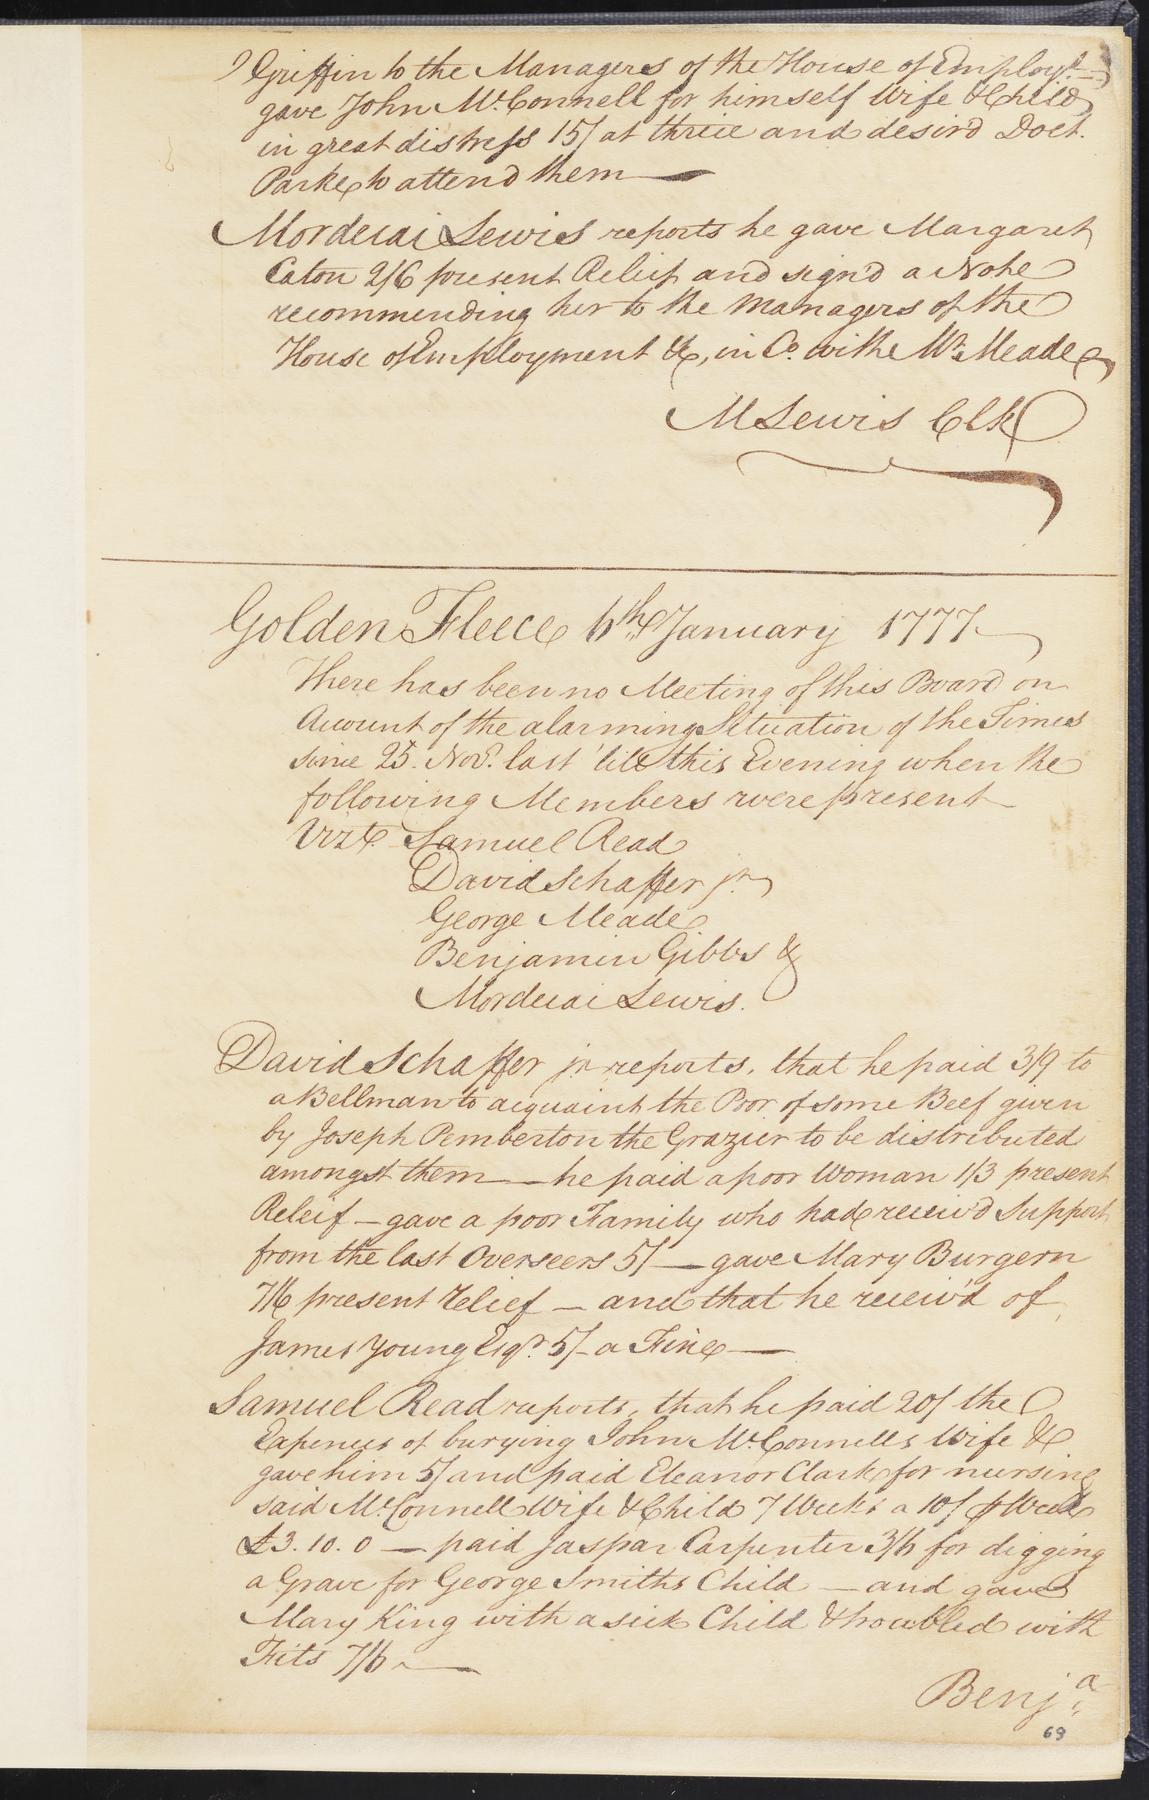 Griffin to the Managers of the House of Employt.
gave John Mc.Connell for himself Wife & Child
in great distress 15/ at thrice and desir'd Doct.
Parke to attend them
Mordecai Lewis reports he gave Margaret
Eaton 2/6 present Relief and sign'd a Note
recommending her to the Managers of the
House of Employment &c, in Co. with Mr. Meade
M Lewis Clk
Golden Fleece 6th January 1777
There has been no Meeting of this Board on
Account of the alarming Situation of the Times
since 25. Nov. last 'till this Evening when the
following Members were present
Vizt. Samuel Read
David Schaffer jr.
George Meade
Benjamin Gibbs &
Mordecai Lewis.
David Schaffer jr reports, that he paid 3/9 to
a Bellman to acquaint the Poor of some Beef given
by Joseph Pemberton the Grazier to be distributed
amongst them — he paid a poor Woman 1/3 present
Relief — gave a poor Family who had receiv'd Support
from the last Overseers 5/ — gave Mary Burgern
7/6 present relief — and that he receiv'd of
James Young Esqr. 5/ - a Fine —
Samuel Read reports, that he paid 20/ the
Expences of burying John Mc.Connells Wife &
gave him 5/ and paid Eleanor Clark for nursing
said Mc.Connell Wife & Child 7 Weeks a 10/ ⅌ Week
£3. 10. 0 — paid Jaspar Carpenter 3/6 for digging
a Grave for George Smiths Child — and gave
Mary King with a sick Child & troubled with
Fits 7/6 —
Benja.
69